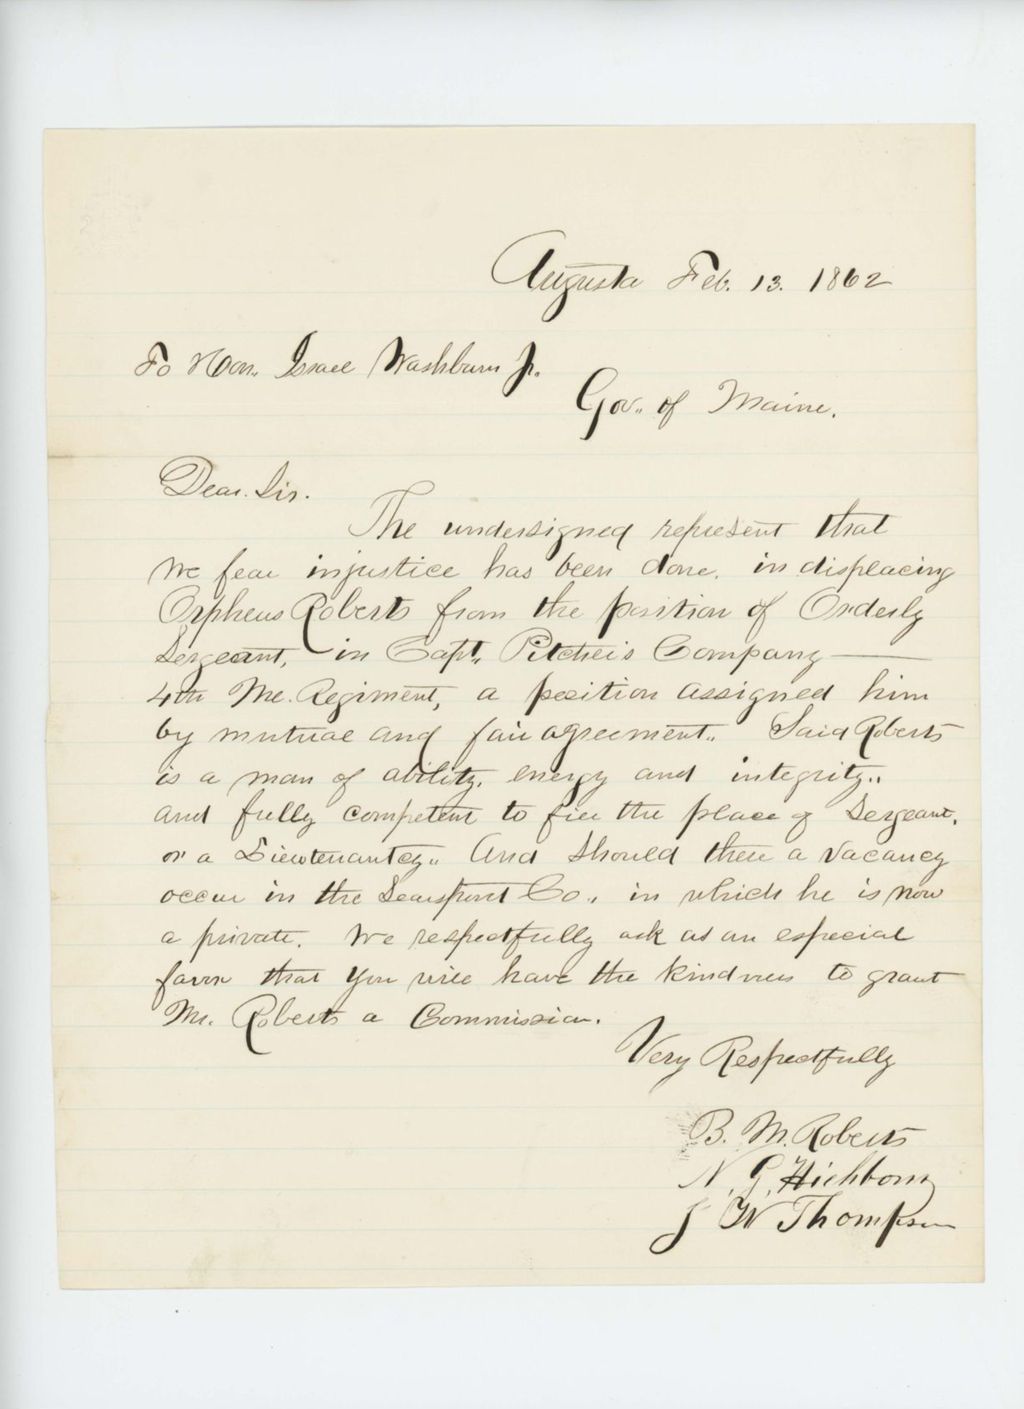 Augusta Feb. 13. 1862
To Hon. Israel Washburn Jr.
Gov. of Maine.
Dear Sir.
The undersigned represent that
we fear injustice has been done, in displacing
Orpheus Roberts from the position of Orderly
Sergeant, in Capt. Pitcher's Company —
4th Me. Regiment, a position assigned him
by mutual and fair agreement. Said Roberts
is a man of ability, energy and integrity,
and fully competent to fill the place of Sergeant,
or a Lieutenantcy. And should there a vacancy
occur in the Searsport Co., in which he is now
a private. We respectfully ask as an especial
favor that you will have the kindness to grant
Mr. Roberts a Commission.
Very Respectfully
B. M. Roberts
N. G. Hichborn
J W Thompson